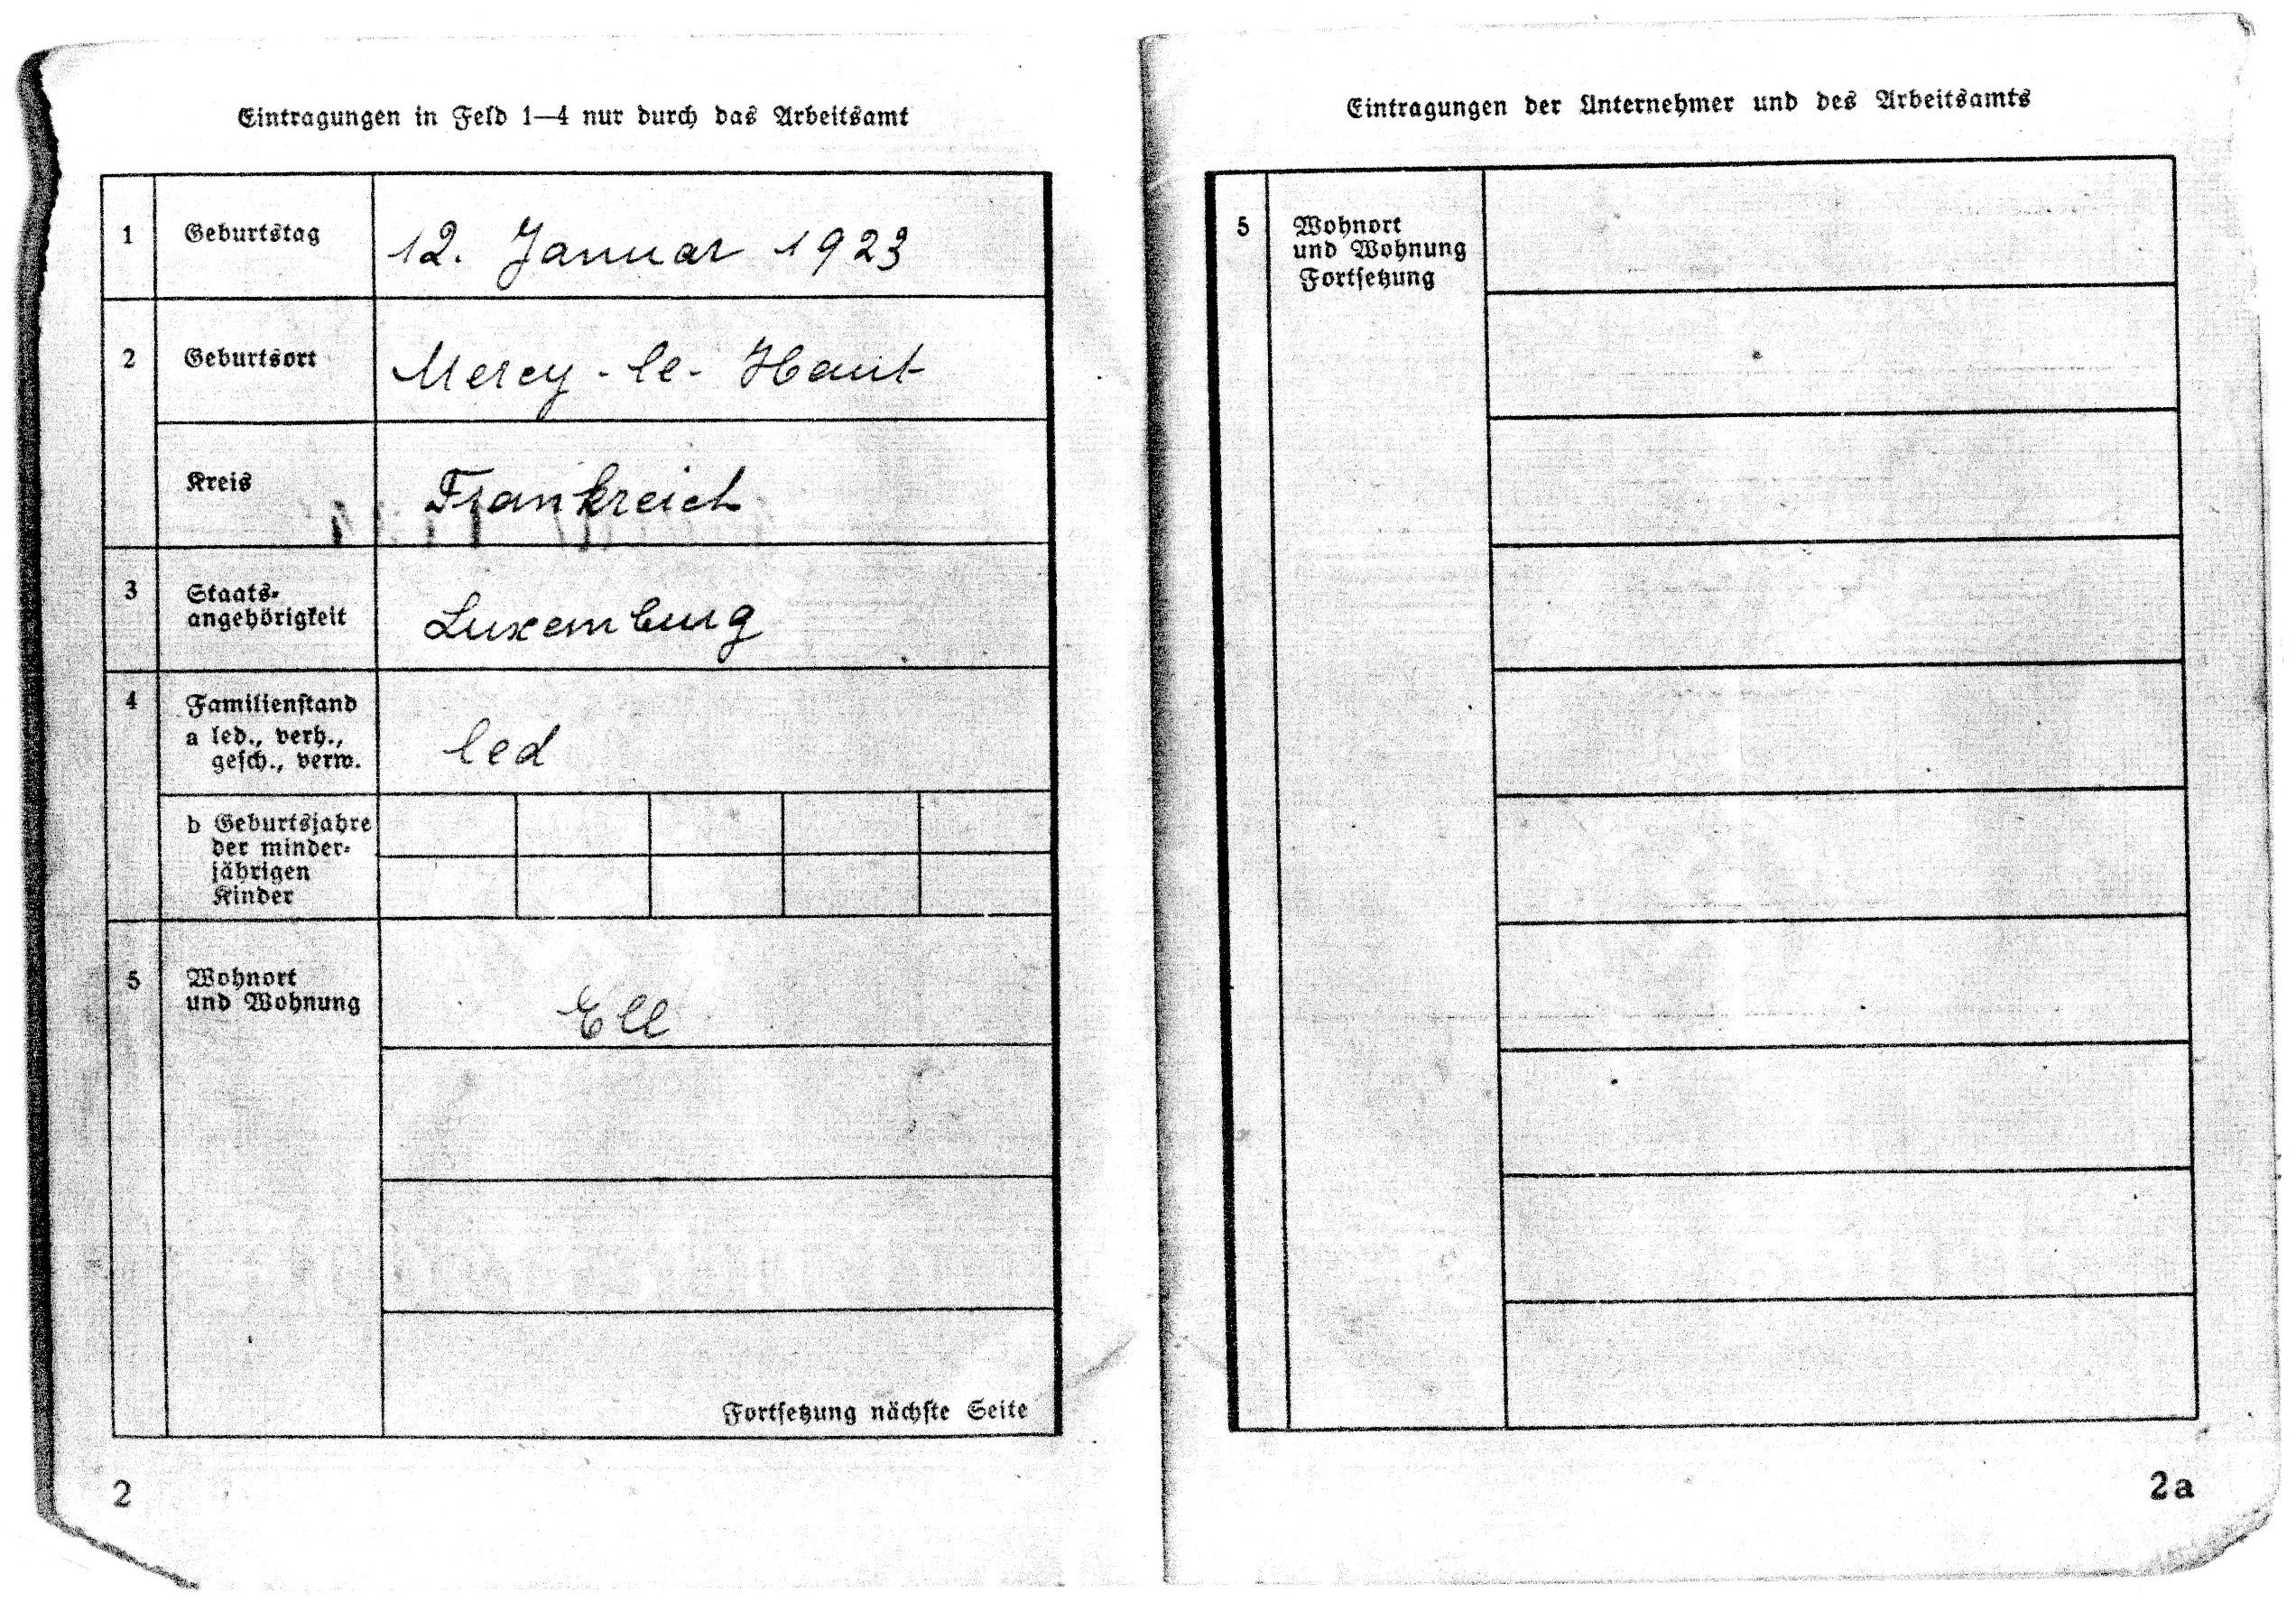 Eintragungen in Feld 1—4 nur durch das Arbeitsamt
1 Geburtstag 12. Januar 1923
2 Geburtsort Mercy-le-Haut
Kreis Frankreich
3 Staats-
angehörigkeit Luxemburg
4 Familienstand
a led., verh.,
gesch., verw. led
b Geburtsjahre
der minder-
jährigen
Kinder
5 Wohnort
und Wohnung Ell
Fortsetzung nächste Seite
2
Eintragungen der Unternehmer und des Arbeitsamts
5 Wohnort
und Wohnung
Fortsetzung
2a